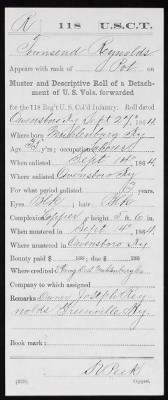 R 118 U.S.C.T.
Townsend Reynolds
Appears with rank of Pvt. on
Muster and Descriptive Roll of a Detach-
ment of U. S. Vols. forwarded
for the 118 Reg't U. S. Col'd Infantry. Roll dated
Owensboro Ky Sept 29, 1864.
Where born Muhlenburg Ky
Age 23 y'rs; occupation Laborer
When enlisted Sept 14, 1864.
Where enlisted Owensboro Ky
For what period enlisted 3 years.
Eyes Blk; hair Blk
Complexion Copper; height 5 ft. 6 in.
When mustered in Sept 14, 1864.
Where mustered in Owensboro Ky
Bounty paid $ 100; due $ 100
Where credited Muhlenburg Co
Company to which assigned
Remarks: Owner Joseph Rey-
nolds Greenville Ky.
Book mark:
Peck
(339) Copyist.